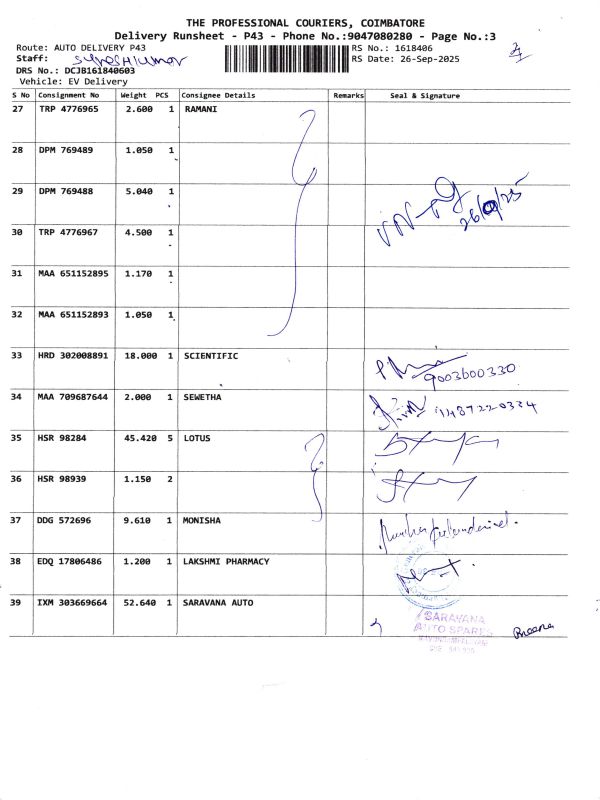 THE PROFESSIONAL COURIERS, COIMBATORE
Delivery Runsheet - P43 - Phone No.:9047080280 - Page No.:3
Route: AUTO DELIVERY P43 RS No.: 1618406
Staff: Sureshkumar RS Date: 26-Sep-2025
DRS No.: DCJB161840603
Vehicle: EV Delivery
S No Consignment No Weight PCS Consignee Details Remarks Seal & Signature
27 TRP 4776965 2.600 1 RAMANI
28 DPM 769489 1.050 1
29 DPM 769488 5.040 1
26/9/25
30 TRP 4776967 4.500 1
31 MAA 651152895 1.170 1
32 MAA 651152893 1.050 1
33 HRD 302008891 18.000 1 SCIENTIFIC
9003600330
34 MAA 709687644 2.000 1 SEWETHA
9487220334
35 HSR 98284 45.420 5 LOTUS
36 HSR 98939 1.150 2
37 DDG 572696 9.610 1 MONISHA
38 EDQ 17806486 1.200 1 LAKSHMI PHARMACY
39 IXM 303669664 52.640 1 SARAVANA AUTO
SARAVANA
AUTO SPARES